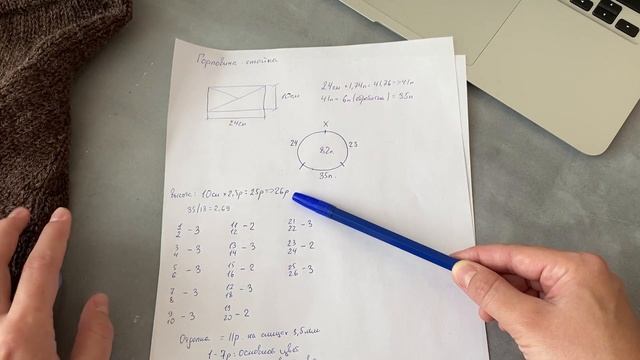 Горловина - стойка
24см × 1,74п = 41,76 => 41п
10см
41п - 6п (обработка) = 35п
24см
X
24 23
82п.
35п.
Высота: 10см × 2,5р = 25р => 26р
35/13 = 2,69
1 2 - 3 11 12 - 2 21 22 - 3
3 4 - 3 13 14 - 3 23 24 - 2
5 6 - 3 15 16 - 2 25 26 - 3
7 8 - 3 17 18 - 3
9 10 - 3 19 20 - 2
= 11р на спицах 3,5мм
1-7р: основной цвет